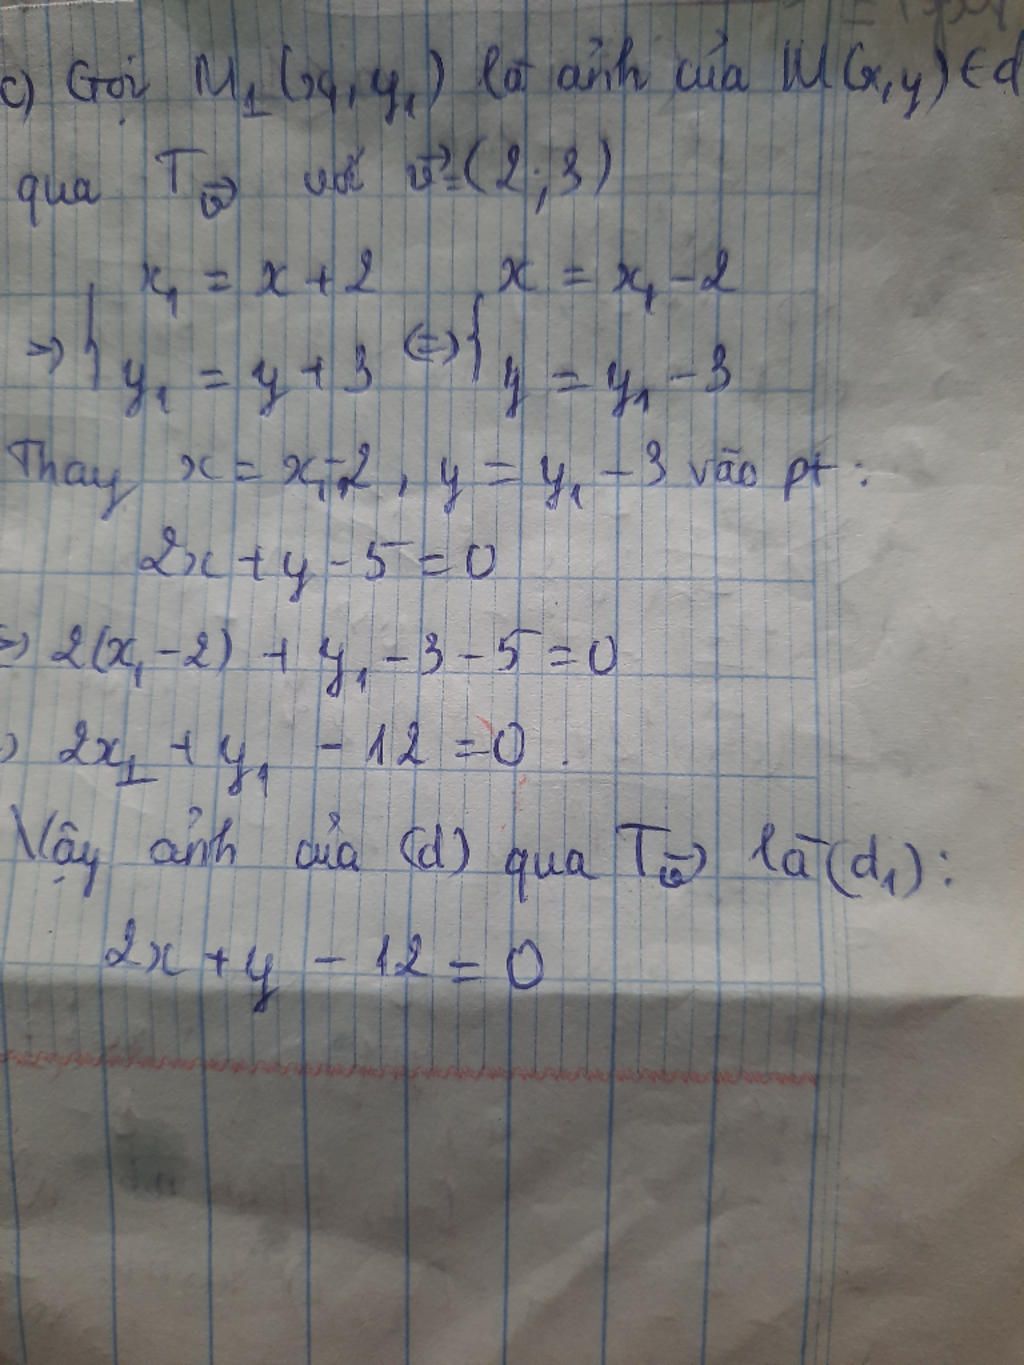 c) Gọi M₁ (x₁, y₁) là ảnh của M(x, y) ∈ d
qua T_v⃗ với v⃗ = (2; 3)
=> { x₁ = x + 2 (=) { x = x₁ - 2
y₁ = y + 3 y = y₁ - 3
Thay x = x₁ - 2, y = y₁ - 3 vào pt :
2x + y - 5 = 0
=) 2(x₁ - 2) + y₁ - 3 - 5 = 0
) 2x₁ + y₁ - 12 = 0.
Vậy ảnh của (d) qua T_v⃗ là (d₁) :
2x + y - 12 = 0